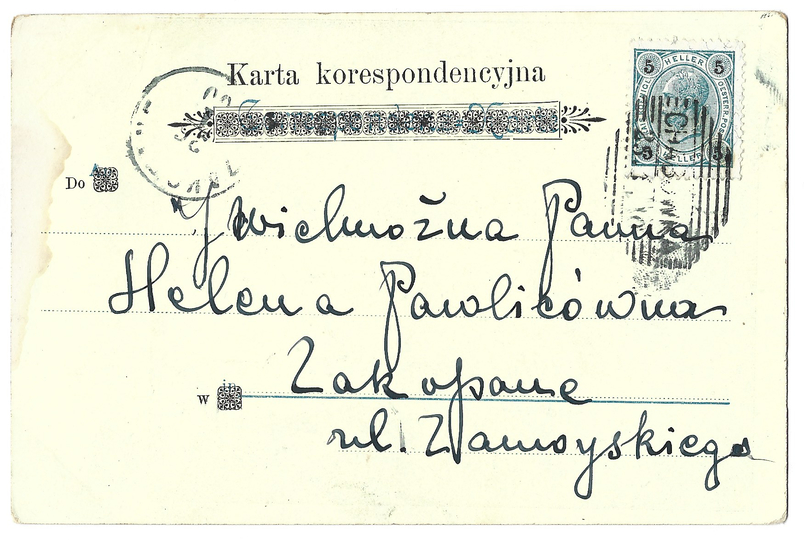 Karta korespondencyjna
5 HELLER 5
5 HELLER 5
Do
JWielmożna Panna
Helena Pawlicówna
w Zakopane
ul. Zamoyskiego